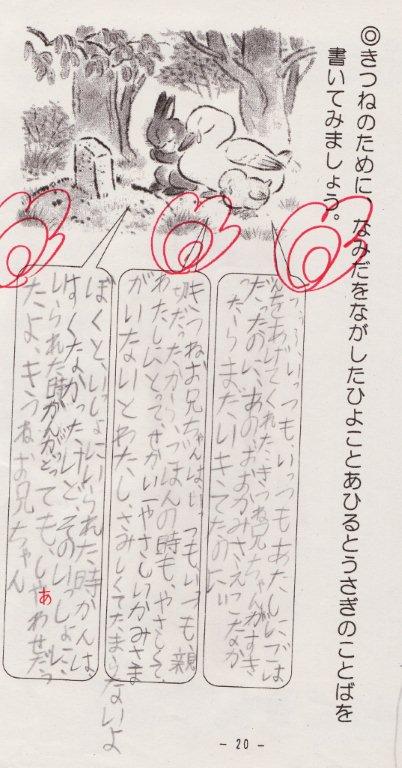 ◎きつねのために、なみだをながしたひよことあひるとうさぎのことばを
書いてみましょう。
いつも、いつもあたしにごは
んをあげてくれた、きつねお兄ちゃんがすき
だったのに、あのおおかみさえいなか
ったらまだいきてたのに…
きつねお兄ちゃんは、いつもいつも、親
切だったから、ごはんの時も、やさしくて、
わたしにとって、せかい一やさしいかみさま
がいないとわたし、さみしくてたまらないよ
ぼくと、いっしょにいられた時かんは、
はくなかったけど、そのいっしょに、
いられた時かんがとっても、しあわせだっ
たよ、きつねお兄ちゃん
あ
- 20 -